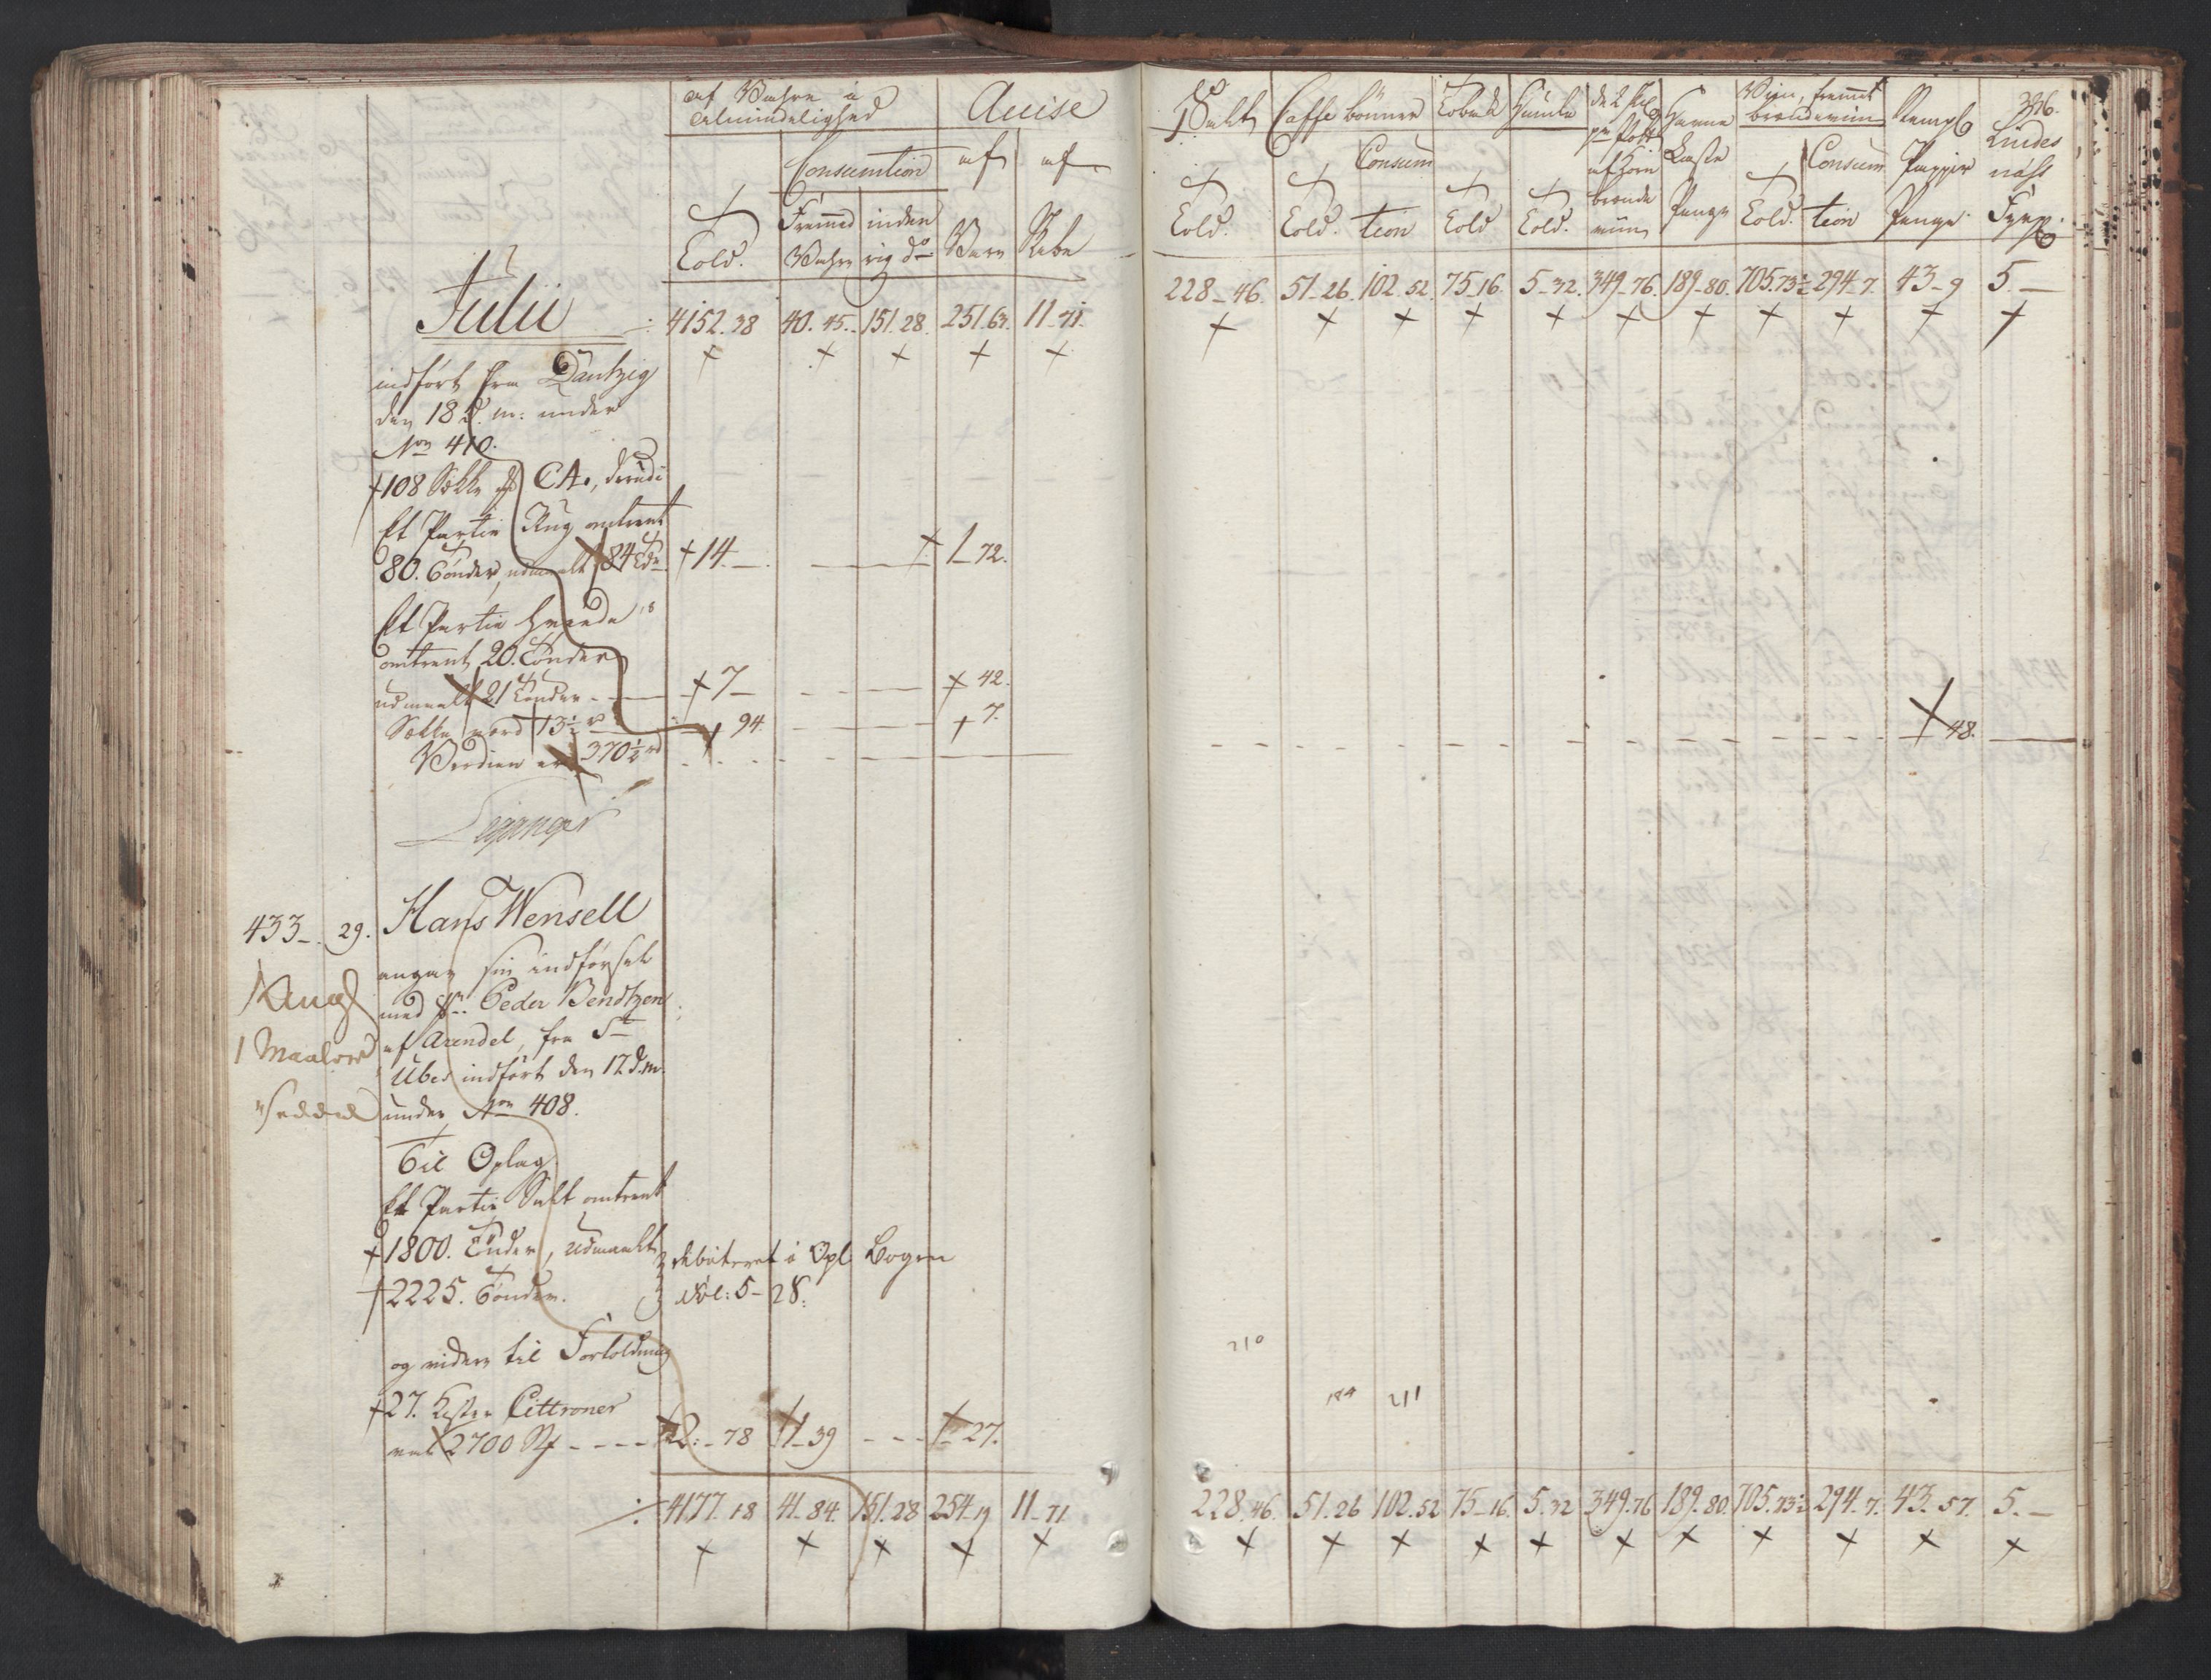 af Vahre i Almindelighed
Acise
Consumtion
af
af
Told.
Fremmed Vahre
inden rig do
Vare
Kebe
Julii
4152. 38
40. 45.
151. 28.
251. 63.
11 - 71.
indført fra Dantzig
den 18 d. m: under
No 410.
108 Sække CA., derudi
Et Partie Rug omtrent
80. Tønder, udmaalt 84 Tdr
14. —
1 - 72.
Et Partie Hvede
omtrent 20. Tønder
udmaalt 21 Tønder
7 —
42.
Sække værd 13½ rd
94.
7.
Verdien er 370½ rd
433 - 29. Hans Wensell
angav sin indførsel
med Sr. Peder Bendtzen
af Arendel, fra St
Ubes indført den 12 d. m.
under No 408.
1 Maaler
seddel
Til Oplag
Et Partie Salt omtrent
1800. Tønder, udmaalt
2225. Tønder.
debiteret i Opl. Bogen
Fol: 5 - 28.
og videre til Fortoldning
27. Kister Cittroner
2700
2. - 78
1 - 39
1 - 27.
4177. 18
41. 84.
151. 28
254. 19
11 - 71
Salt
Caffe bönner
Tobak
Humle
de 2 pr Pott af Korn brendeviin
Havne
Laste
Penge
Viin, fremmet brendeviin
Stempl
Papiir
Penge
316.
Lindes
näss
Fyer
Told.
Told.
Consumtion
Told
Told.
Told.
Consumtion
228 - 46.
51 - 26.
102. 52.
75 - 16.
5 - 32.
349 - 76.
189 - 80.
705. 73½
294 - 7.
43 - 9
5. —
48.
210
184
211
228. 46.
51. 26
102. 52
75 - 16.
5. 32
349. 76
189. 80.
705. 73½
294. 7.
43. 57.
5. —